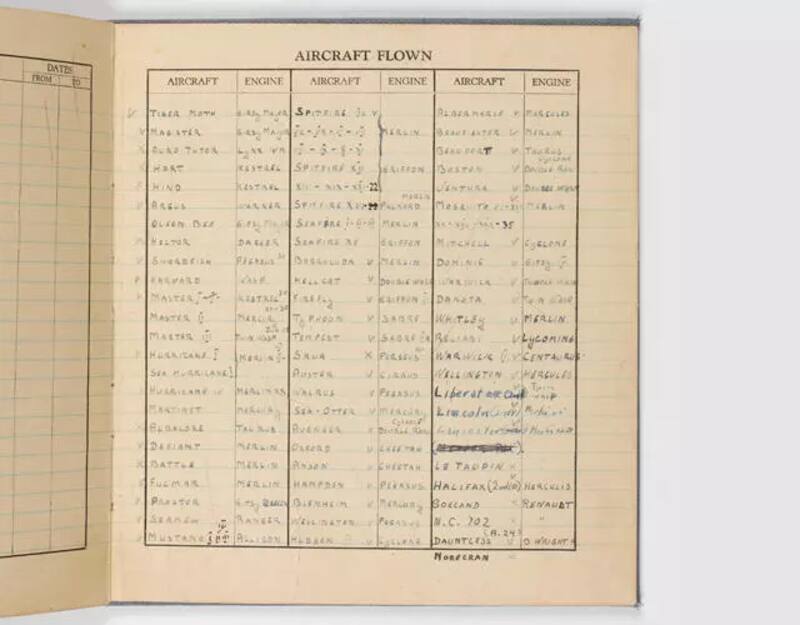 DATES
FROM TO
AIRCRAFT FLOWN
AIRCRAFT ENGINE AIRCRAFT ENGINE AIRCRAFT ENGINE
TIGER MOTH GIPSY MAJOR SPITFIRE ALBERMARLE V HERCULES
MAGISTER GIPSY MAJOR MERLIN BEAUFIGHTER V MERLIN
TUTOR LYNX BEAUFORT V TAURUS
HART KESTREL SPITFIRE XII GRIFFON BOSTON V CYCLONE DOUBLE ROW
HIND KESTREL 22 VENTURA V DOUBLE WASP
ARGUS SPITFIRE MERLIN PACKARD MOSQUITO MERLIN
QUEEN BEE GIPSY MAJOR SEAFIRE MERLIN 35
HECTOR DAGGER SEAFIRE XV GRIFFON MITCHELL V CYCLONE
SWORDFISH PEGASUS BARRACUDA V MERLIN DOMINIE V GIPSY
HARVARD WASP HELLCAT V DOUBLE WASP WARWICK V DOUBLE WASP
MASTER I KESTREL FIREFLY V GRIFFON DAKOTA V TWIN WASP
MASTER MERCURY TYPHOON V SABRE WHITLEY V MERLIN
MASTER III TWIN WASP TEMPEST V SABRE RELIANT V LYCOMING
HURRICANE I MERLIN SKUA X PERSEUS WARWICK V CENTAURUS
SEA HURRICANE AUSTER V CIRRUS WELLINGTON V HERCULES
HURRICANE IV MERLIN WALRUS V PEGASUS Liberator Twin Wasp
MARTINET MERCURY SEA-OTTER V MERCURY Lincoln
ALBACORE TAURUS AVENGER CYCLONE DOUBLE ROW
DEFIANT MERLIN OXFORD V CHEETAH
BATTLE MERLIN ANSON V CHEETAH LE TAUPIN X
FULMAR MERLIN HAMPDEN V PEGASUS HALIFAX HERCULES
PROCTOR GIPSY QUEEN BLENHEIM V MERCURY RENAULT
SEAMEW RANGER WELLINGTON V PEGASUS N.C. 702 "
MUSTANG ALLISON HUDSON V CYCLONE DAUNTLESS (A.24)
NORECRAN